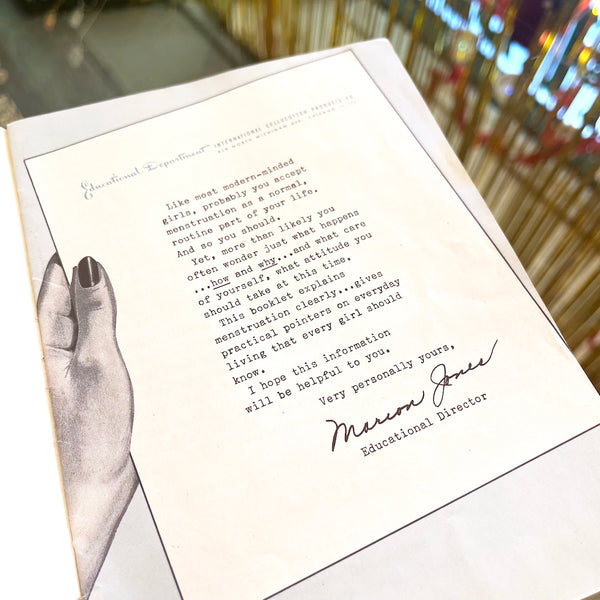 Educational Department INTERNATIONAL CELLUCOTTON PRODUCTS CO.
919 NORTH MICHIGAN AVE., CHICAGO
Like most modern-minded
girls, probably you accept
menstruation as a normal,
routine part of your life.
And so you should.
Yet, more than likely you
often wonder just what happens
...how and why...and what care
of yourself, what attitude you
should take at this time.
This booklet explains
menstruation clearly...gives
practical pointers on everyday
living that every girl should
know.
I hope this information
will be helpful to you.
Very personally yours,
Marion Jones
Educational Director